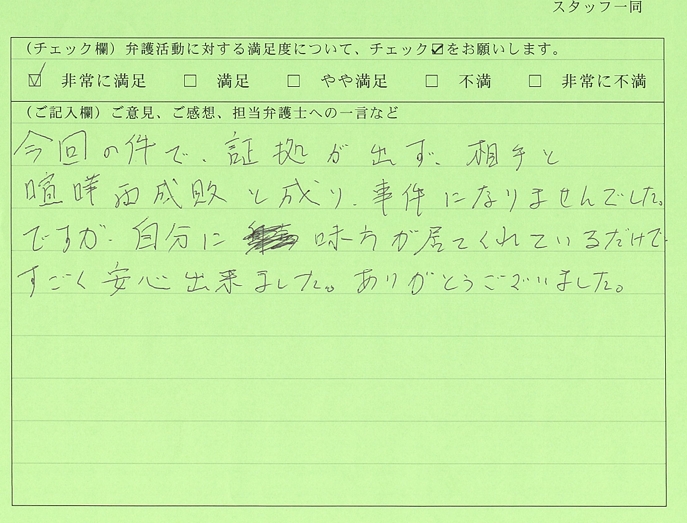 スタッフ一同
(チェック欄)弁護活動に対する満足度について、チェック☑をお願いします。
☑ 非常に満足 □ 満足 □ やや満足 □ 不満 □ 非常に不満
(ご記入欄)ご意見、ご感想、担当弁護士への一言など
今回の件で、証拠が出ず、相手と
喧嘩両成敗と成り、事件になりませんでした。
ですが、自分に味方が居てくれているだけで
すごく安心出来ました。ありがとうございました。